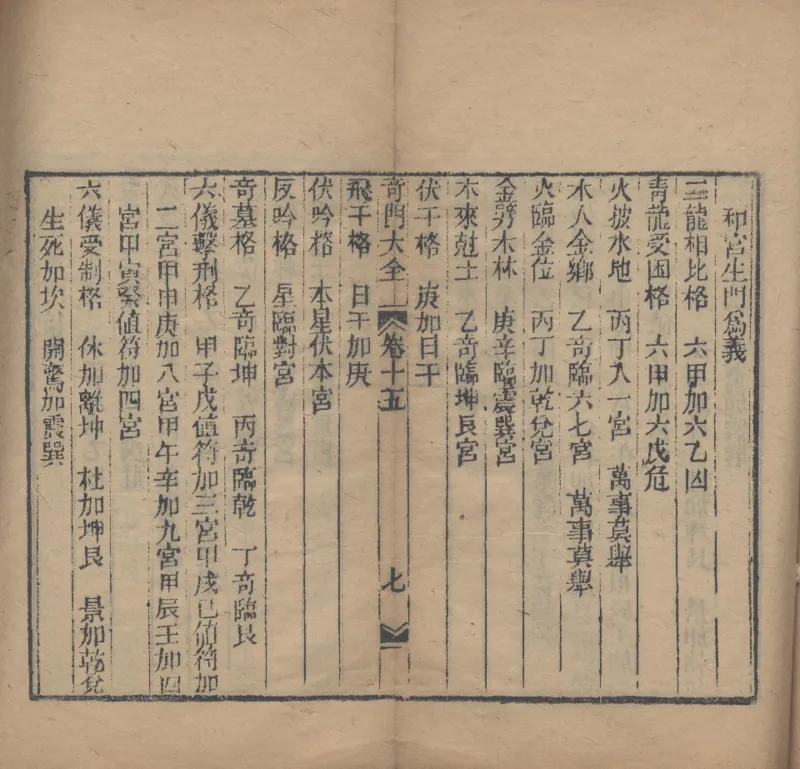 和宮生門爲義
三龍相比格 六甲加六乙凶
靑龍受困格 六甲加六戊危
火披水地 丙丁入一宮 萬事莫舉
木入金鄉 乙奇臨六七宮 萬事莫舉
火臨金位 丙丁加乾兌宮
金劈木林 庚辛臨震巽宮
木來尅土 乙奇臨坤艮宮
伏干格 庚加日干
奇門大全 卷十五 七
飛干格 日干加庚
伏吟格 本星伏本宮
反吟格 星臨對宮
奇墓格 乙奇臨坤 丙奇臨乾 丁奇臨艮
六儀擊刑格 甲子戊値符加三宮甲戌己値符加
二宮甲申庚加八宮甲午辛加九宮甲辰壬加四
宮甲寅癸値符加四宮
六儀受制格 休加離坤 杜加坤艮 景加乾兌
生死加坎 開驚加震巽